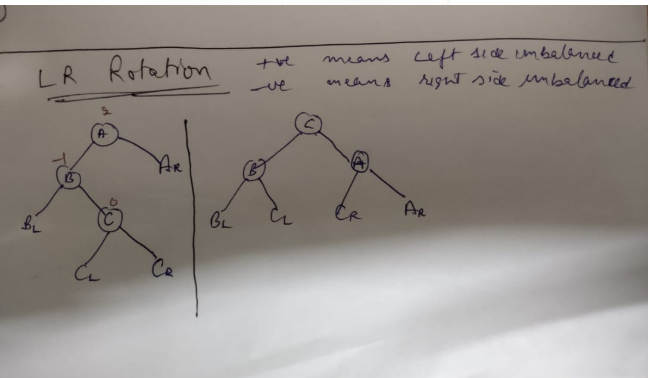 LR Rotation
+ve means left side unbalanced
-ve means right side unbalanced
2
A
-1
B
AR
BL
0
C
CL
CR
C
B
A
BL
CL
CR
AR